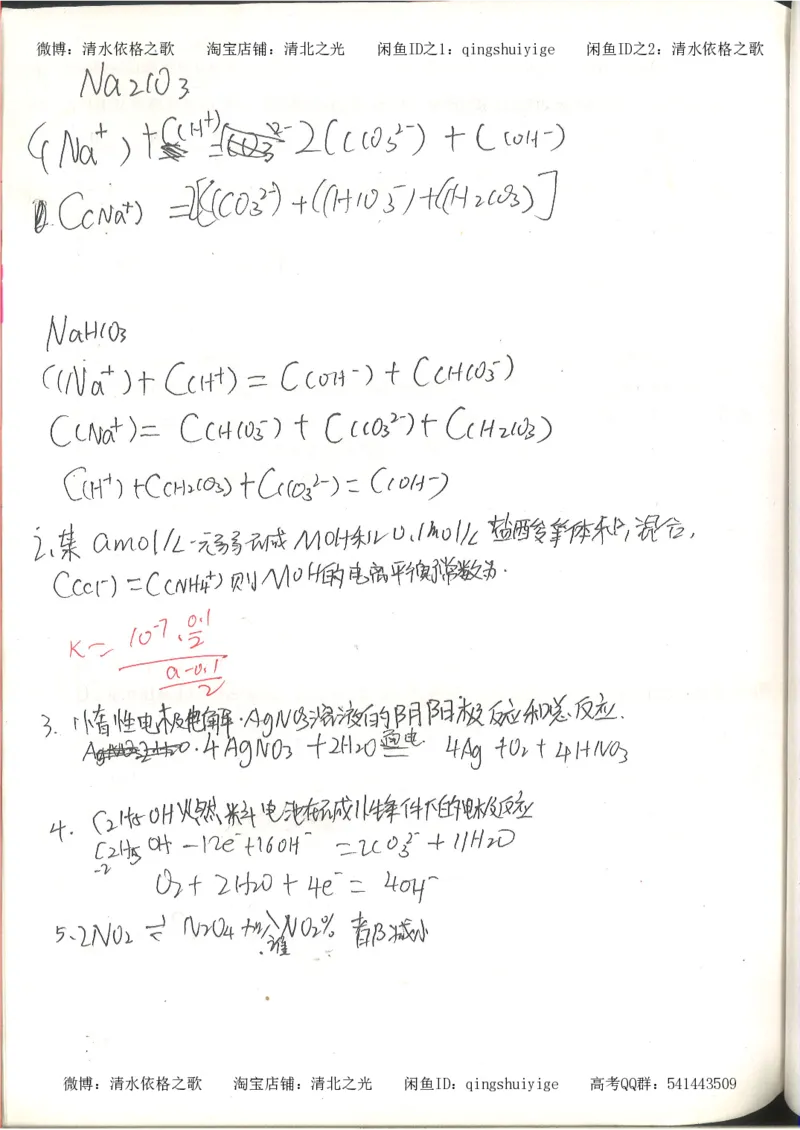 微博：清水依格之歌 淘宝店铺：清北之光 闲鱼ID之1：qingshuiyige 闲鱼ID之2：清水依格之歌
Na2CO3
C(Na+) + C(H+) = 2C(CO3²⁻) + C(OH-)
C(Na+) = 2[C(CO3²⁻) + C(HCO3⁻) + C(H2CO3)]
NaHCO3
C(Na+) + C(H+) = C(OH-) + C(HCO3⁻)
C(Na+) = C(HCO3⁻) + C(CO3²⁻) + C(H2CO3)
C(H+) + C(H2CO3) + C(CO3²⁻) = C(OH-)
2、某 amol/L 一元弱碱 MOH和 0.1mol/L 盐酸等体积混合，
C(Cl-) = C(NH4+) 则MOH的电离平衡常数为.
K = 10⁻⁷ · 0.1/2
a-0.1
2
3. 惰性电极电解 AgNO3溶液的阴阳极反应和总反应.
4AgNO3 + 2H2O 通电 4Ag + O2 + 4HNO3
4. C2H5OH 燃料电池在碱性条件下的电极反应
C2H5OH - 12e⁻ + 16OH⁻ = 2CO3²⁻ + 11H2O
-2
O2 + 2H2O + 4e⁻ = 4OH⁻
5、2NO2 ⇌ N2O4 加入谁 NO2% 都减小
微博：清水依格之歌 淘宝店铺：清北之光 闲鱼ID：qingshuiyige 高考QQ群：541443509